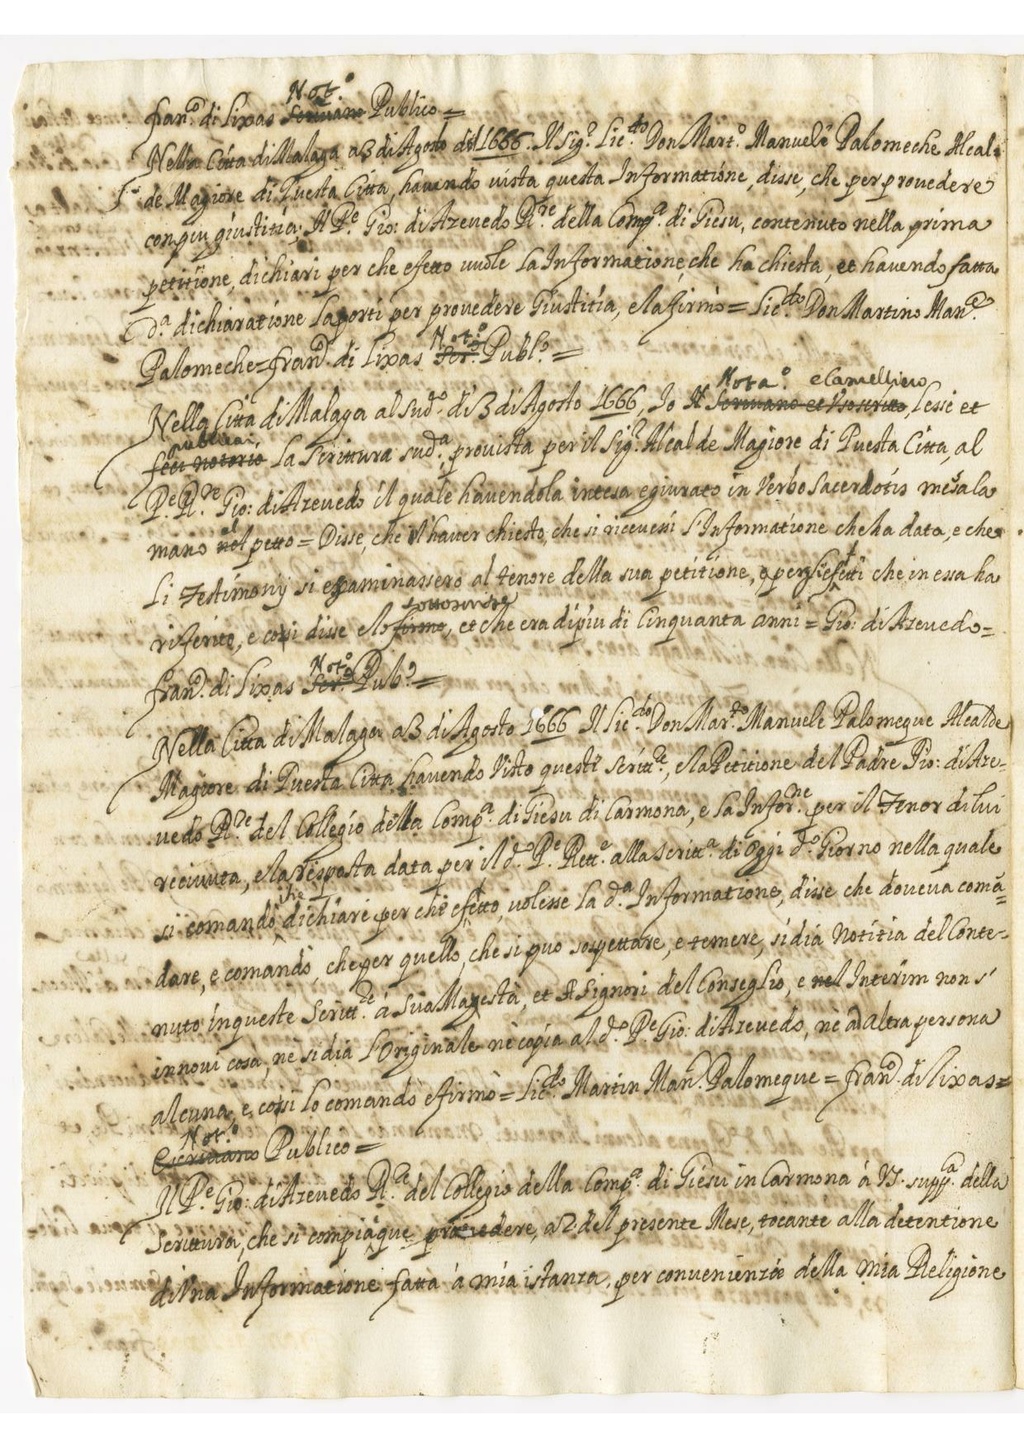 Not.º
Fran.º di Lixas Scrivano Publico =
Nella Citta di Malaga a 3 di Agosto del 1666. Il Sig.r Lic.do Don Mart.º Manuele Palomeche Alcal-
de Magiore di Questa Citta, havendo vista questa Informatione, disse, che per provedere
con piu giustitia, Il P.e Gio: di Azevedo R.re della Comp.a di Giesu, contenuto nella prima
petitione, dichiari per che efetto vuole la Informatione che ha chiesta, et havendo fatta
d.a dichiaratione la porti per provedere Giustitia, e la firmò = Lic.do Don Martino Man.e
Not.º
Palomeche = Fran.º di Lixas Scr.º Publ.º =
Nota.º e Cancelliero
Nella Citta di Malaga al sud.º di 3 di Agosto 1666, Io Il Scrivano et Proscrito, lessi et
publicai
feci notorio la Scrittura sud.a, provista per il Sig.r Alcalde Magiore di Questa Citta, al
P.e R.re Gio: di Azevedo il quale havendola intesa e giurato in Verbo Sacerdotis messa la
mano nel petto = Disse, che il haver chiesto, che si ricevessi l'Informatione che ha data, e che
li Testimonij si esaminassero al tenore della sua petitione, e per li efetti che in essa ha
sottoscrisse
riferito, e cosi disse e lo firmo, et che era di piu di Cinquanta anni = Gio: di Azevedo =
Not.º
Fran.º di Lixas Scr.º Pub.º =
Nella Citta di Malaga a 3 di Agosto 1666 Il Lic.do Don Mar.to Manuele Palomeque Alcalde
Magiore di Questa Citta, havendo Visto queste scritt.e, e la Petitione del Padre Gio: di Aze-
vedo R.re del Collegio della Comp.a di Giesu di Carmona, e la Infor.ne per il Tenor di lui
ricivuta, e la risposta data per il d.º P.e Rett.e alla scritt.a di Oggi d.º Giorno nella quale
che
si comandò dichiari per che efetto, volesse la d.a Informatione, disse che doveva comã=
dare, e comandò, che per quello, che si puo sospettare, e temere, si dia Notitia del Conte-
nuto in queste Scritt.e à Sua Magestà, et Il Signori del Conseglio, e nel Interim non s'
innovi cosa, nè si dia l'Originale nè copia al d.º P.e Gio: di Azevedo, nè ad altra persona
alcuna, e cosi lo comandò e firmò = Lic.do Martin Man.l Palomeque = Fran.º di Lixas =
Not.º
Escrivano Publico =
Il P.e Gio: di Azevedo R.e del Collegio della Comp.a di Giesu in Carmona à V.S. supp.ca della
Scrittura, che si compiaque provedere, a 2 del presente Mese, tocante alla detentione
di Una Informatione fatta à mia istanza, per convenienzie della mia Religione